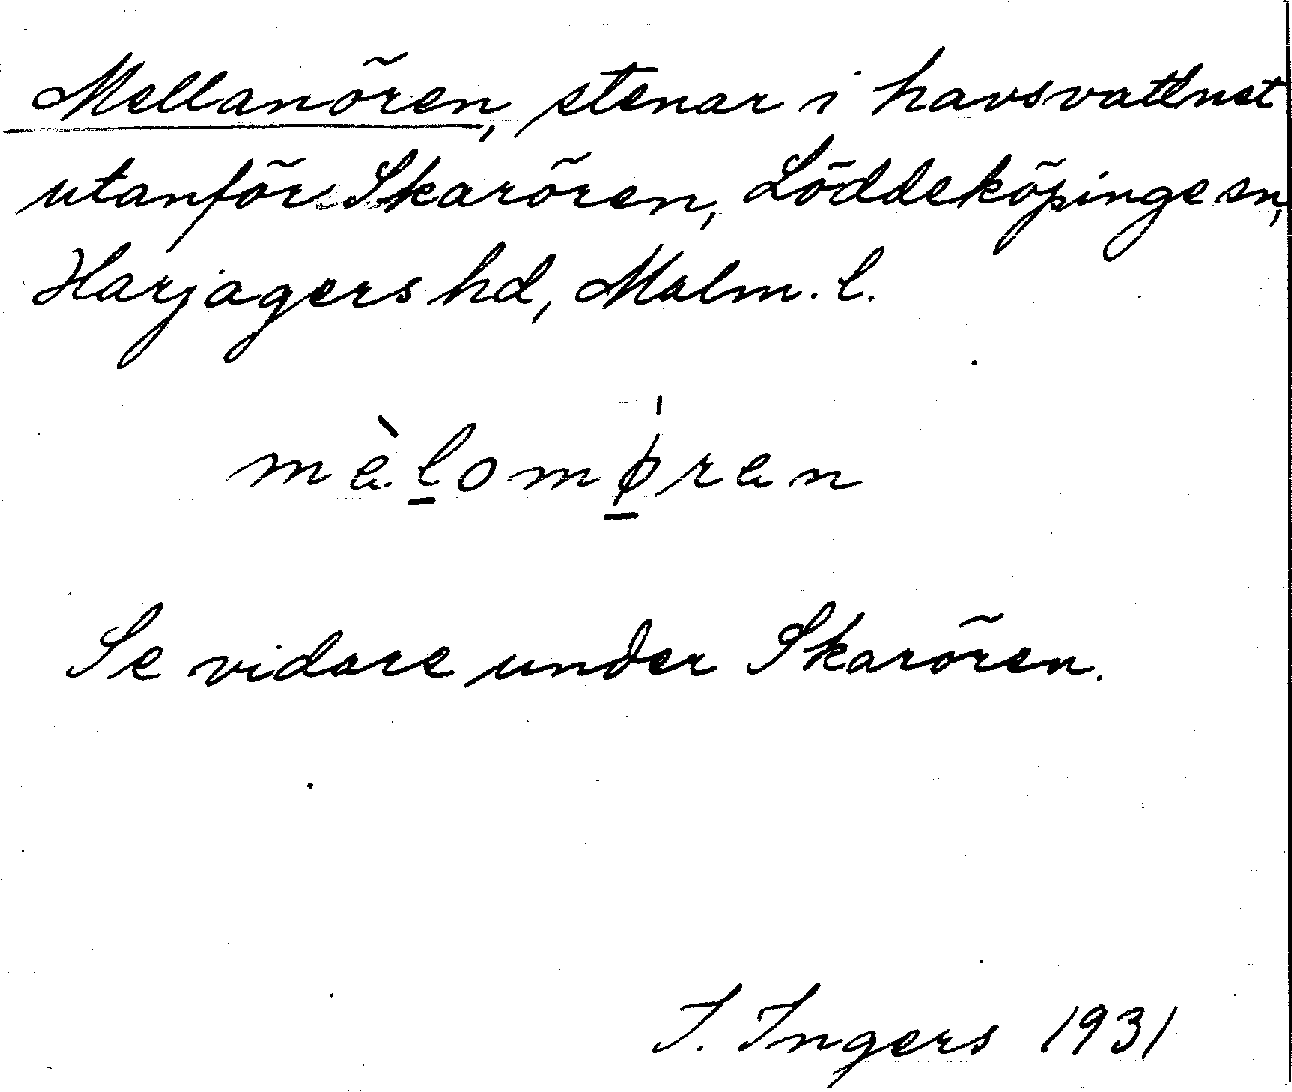 Mellanören, stenar i havsvattnet
utanför Skarören, Löddeköpinge sn,
Harjagers hd, Malm. l.
mèl̲omø̲̍ran
Se vidare under Skarören.
I. Ingers 1931